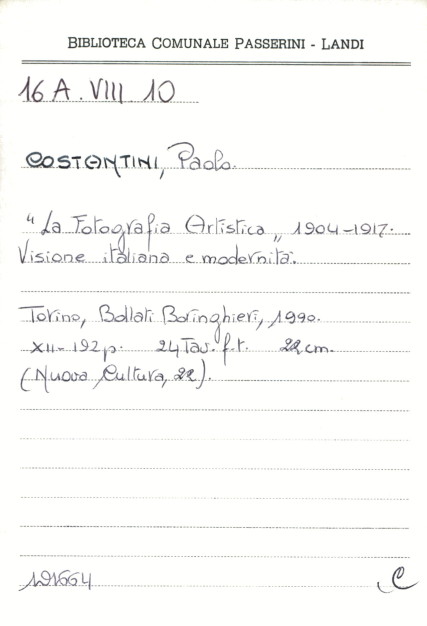 BIBLIOTECA COMUNALE PASSERINI - LANDI
16 A. VIII. 10
COSTANTINI, Paolo.
"La Fotografia Artistica„ 1904-1917.
Visione italiana e modernità.
Torino, Bollati Boringhieri, 1990.
XII-192 p. 24 Tav. f.t. 22 cm.
(Nuova Cultura, 22).
191664
C